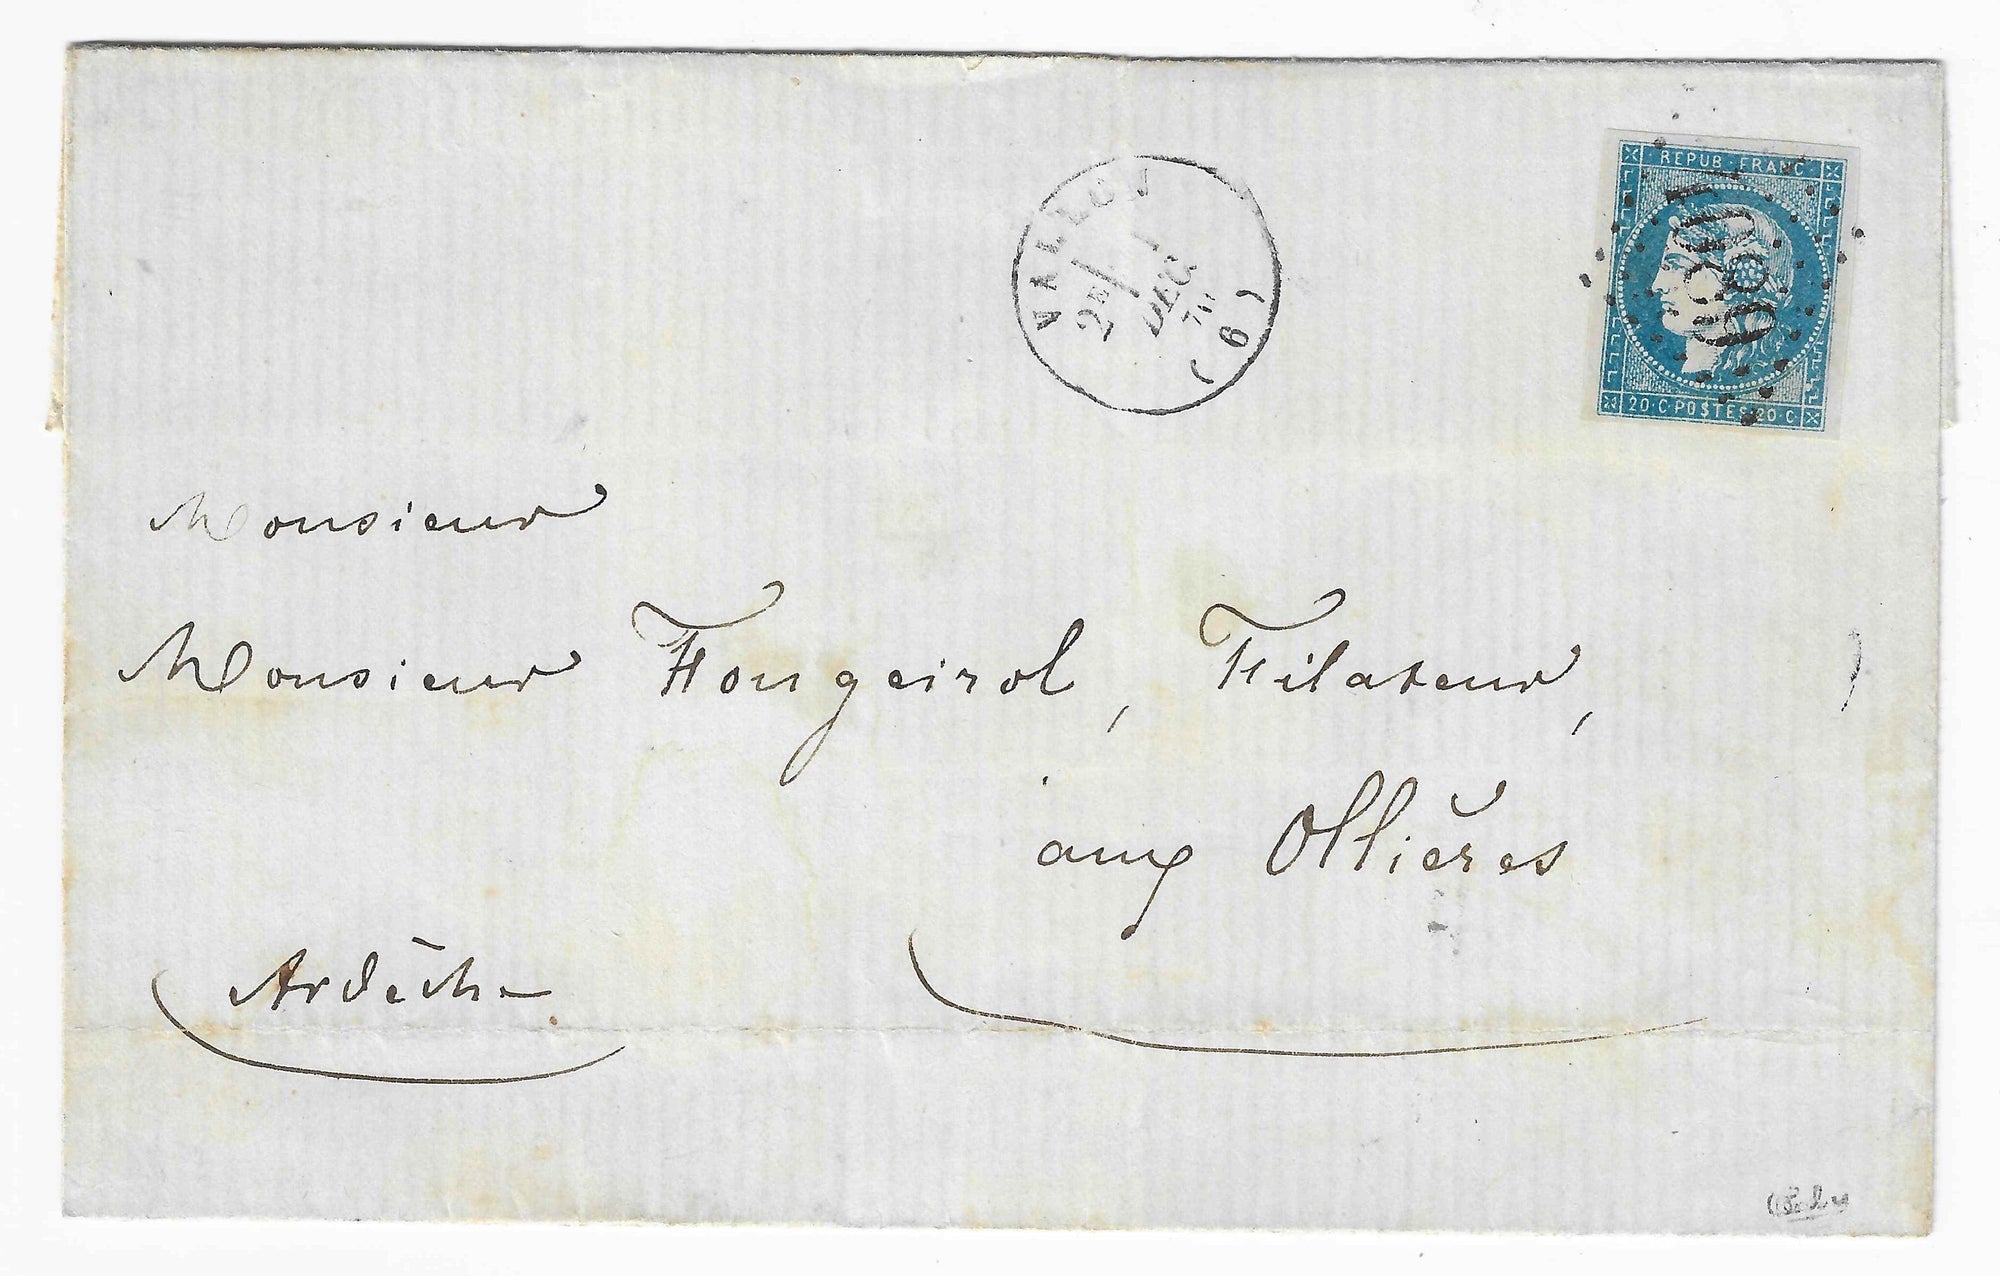 VALLON
2E
1
DEC.
70
(6)
REPUB·FRANC·
20·C·POSTES·20·C·
Monsieur
Monsieur Fougeirol, Filateur,
aux Ollières
Ardèche